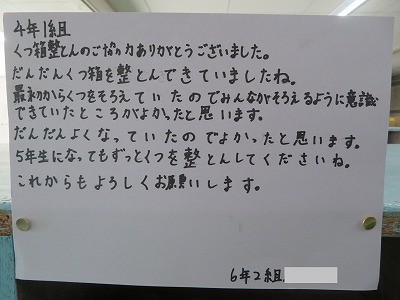 4年1組
くつ箱整とんのごきょう力ありがとうございました。
だんだんくつ箱を整とんできていましたね。
最初からくつをそろえていたのでみんながそろえるように意識
できていたところがよかったと思います。
だんだんよくなっていたのでよかったと思います。
5年生になってもずっとくつを整とんしてくださいね。
これからもよろしくお願いします。
6年2組